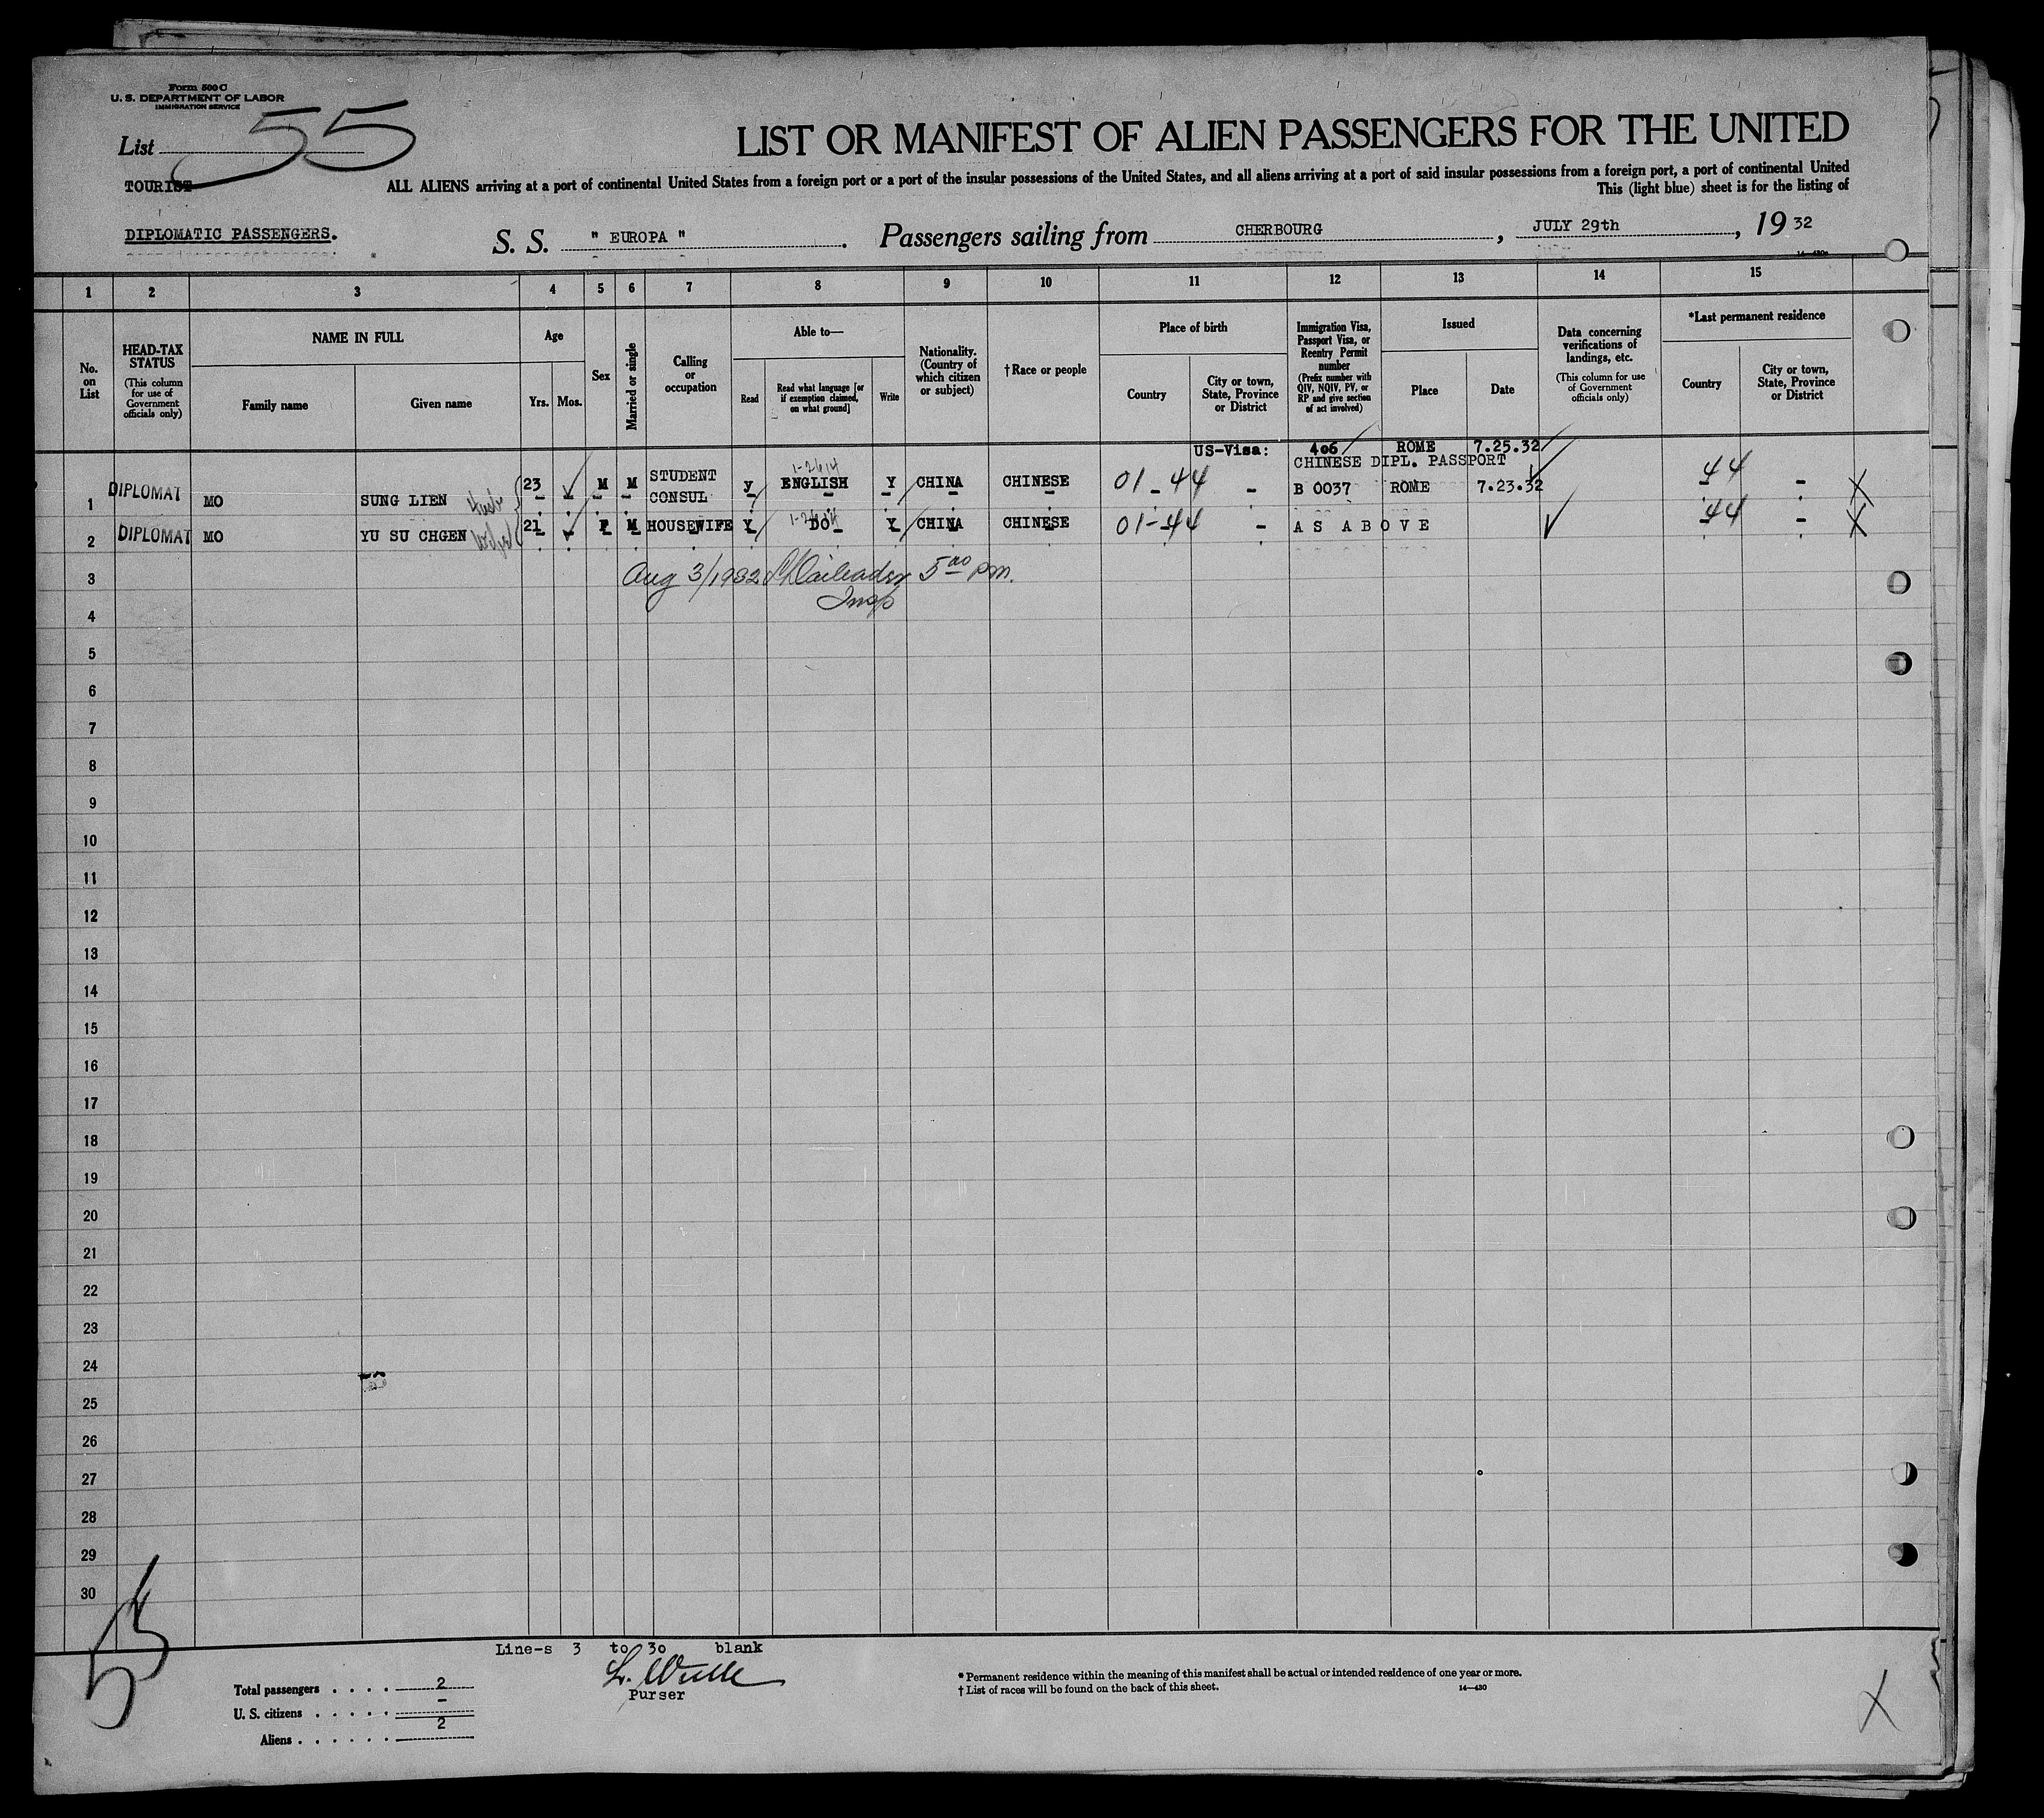 Form 500 C
U. S. DEPARTMENT OF LABOR
IMMIGRATION SERVICE
List 55
LIST OR MANIFEST OF ALIEN PASSENGERS FOR THE UNITED
TOURIST
ALL ALIENS arriving at a port of continental United States from a foreign port or a port of the insular possessions of the United States, and all aliens arriving at a port of said insular possessions from a foreign port, a port of continental United
This (light blue) sheet is for the listing of
DIPLOMATIC PASSENGERS.
S. S. " EUROPA ". Passengers sailing from CHERBOURG, JULY 29th, 19 32
1 2 3 4 5 6 7 8 9 10 11 12 13 14 15
No. on List
HEAD-TAX STATUS (This column for use of Government officials only)
NAME IN FULL
Family name Given name
Age
Yrs. Mos.
Sex
Married or single
Calling or occupation
Able to—
Read
Read what language [or if exemption claimed, on what ground]
Write
Nationality. (Country of which citizen or subject)
†Race or people
Place of birth
Country
City or town, State, Province or District
Immigration Visa, Passport Visa, or Reentry Permit number (Prefix number with QIV, NQIV, PV, or RP and give section of act involved)
Issued
Place Date
Data concerning verifications of landings, etc. (This column for use of Government officials only)
*Last permanent residence
Country
City or town, State, Province or District
US-Visa: 406 ROME 7.25.32
CHINESE DIPL. PASSPORT
1 DIPLOMAT MO SUNG LIEN 23 M M STUDENT CONSUL y ENGLISH Y CHINA CHINESE 01-44 - B 0037 ROME 7.23.32 44 -
2 DIPLOMAT MO YU SU CHGEN 21 F M HOUSEWIFE Y DO Y CHINA CHINESE 01-44 - AS ABOVE 44 -
3
Aug 3/1932 5 00 pm.
Insp
4
5
6
7
8
9
10
11
12
13
14
15
16
17
18
19
20
21
22
23
24
25
26
27
28
29
30
55
Line-s 3 to 30 blank
Purser
Total passengers . . . . 2
U. S. citizens . . . . . -
Aliens . . . . . . 2
* Permanent residence within the meaning of this manifest shall be actual or intended residence of one year or more.
† List of races will be found on the back of this sheet.
14—430